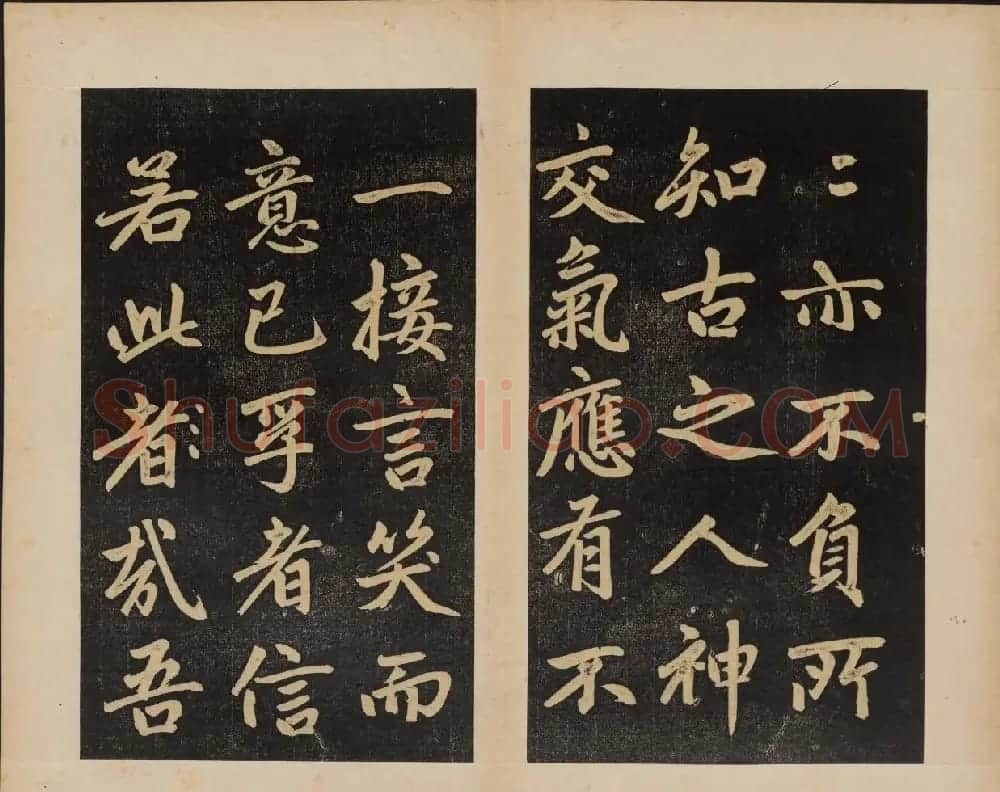 〻亦不負所
知古之人神
交氣應有不
一接言笑而
意已孚者信
若此者〻㢤吾
Shufaziliao.COM